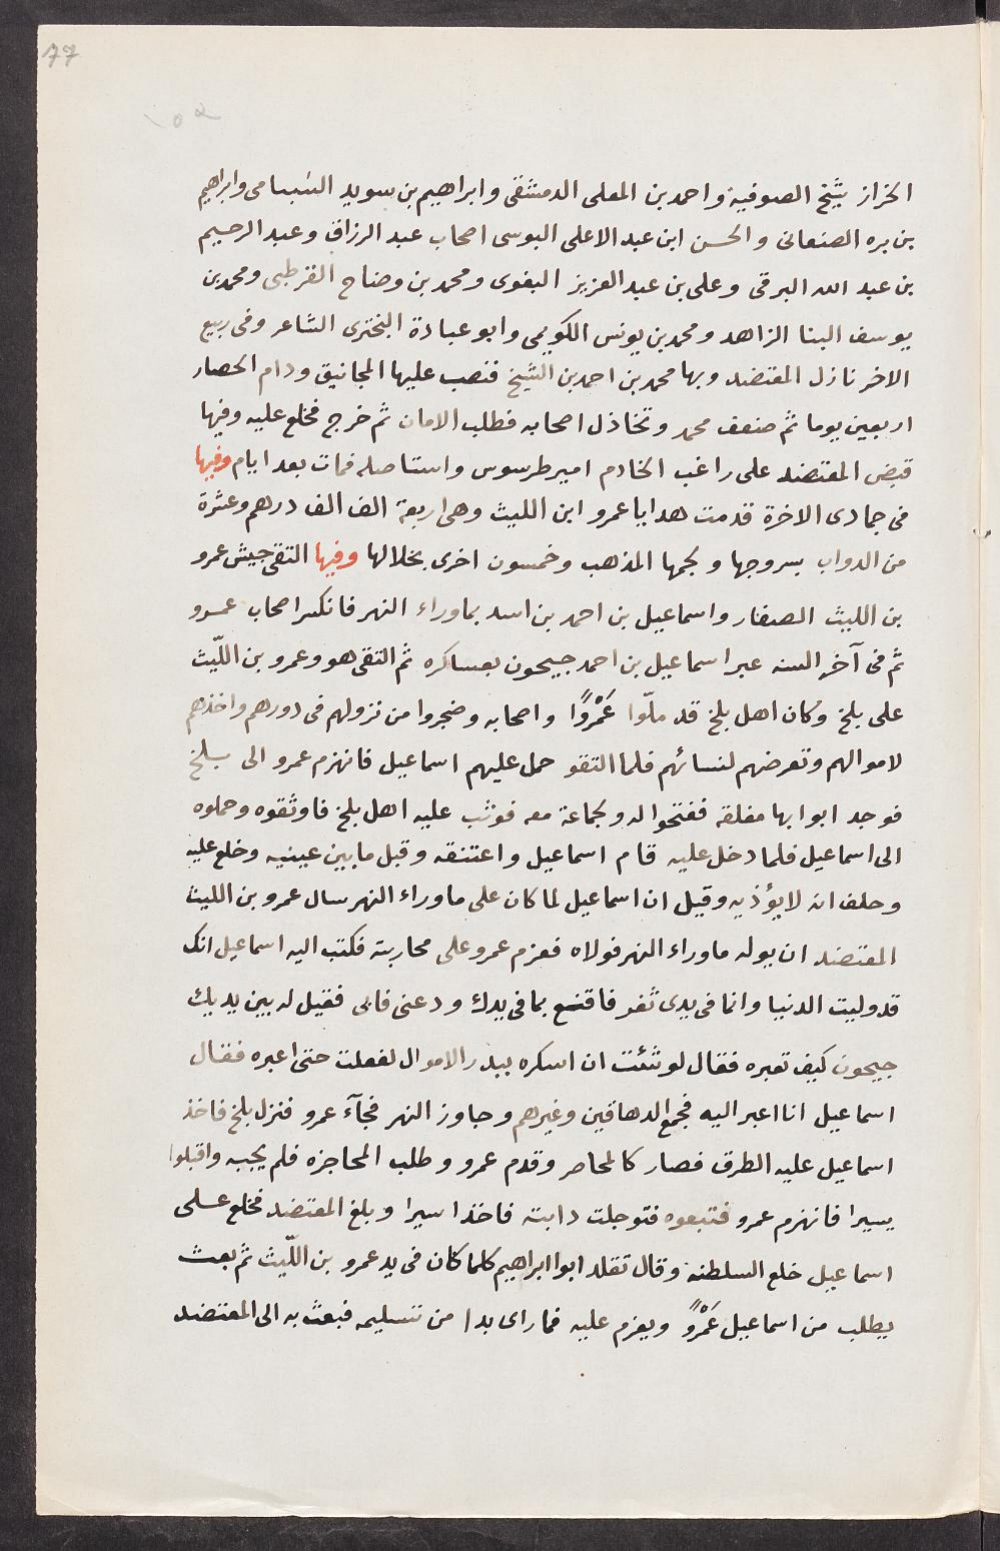 77
١٥٢
الخراز شيخ الصوفية واحمد بن المعلى الدمشقى وابراهيم بن سويد الشبامى وابراهيم
بن بره الصنعانى والحسن ابن عبد الاعلى البوسى اصحاب عبد الرزاق وعبد الرحيم
بن عبد الله البرقى وعلى بن عبد العزيز البغوى ومحمد بن وضاح القرطبى ومحمد بن
يوسف البنا الزاهد ومحمد بن يونس الكويمى وابو عبادة البخترى الشاعر وفى ربيع
الاخر نازل المعتضد وبها محمد بن احمد بن الشيخ فنصب عليها المجانيق ودام الحصار
اربعين يوما ثم ضعف محمد وتخاذل اصحابه فطلب الامان ثم خرج فخلع عليه وفيها
قبض المعتضد على راغب الخادم امير طرسوس واستاصله فمات بعد ايام وفيها
فى جمادى الاخرة قدمت هدايا عمرو ابن الليث وهى اربعة الف الف درهم وعشرة
من الدواب بسروجها ولجمها المذهب وخمسون اخرى بخلالها وفيها التقى جيش عمرو
بن الليث الصفار واسماعيل بن احمد بن اسد بماوراء النهر فانكسر اصحاب عمرو
ثم فى آخر السنه عبر اسماعيل بن احمد جيحون بعساكره ثم التقى هو وعمرو بن اللّيث
على بلخ وكان اهل بلخ قد ملّوا عَمْرًوا واصحابه وضجروا من نزولهم فى دورهم واخذهم
لاموالهم وتعرضهم لنسائهم فلما التقو حمل عليهم اسماعيل فانهزم عمرو الى بلخ
فوجد ابوابها مغلقه ففتحوا له ولجماعة معه فوثب عليه اهل بلخ فاوثقوه وحملوه
الى اسماعيل فلما دخل عليه قام اسماعيل واعتنقه وقبل مابين عينيه وخلع عليه
وحلف انه لايؤذيه وقيل ان اسماعيل لما كان على ماوراء النهر سال عمرو بن الليث
المعتضد ان يوله ماوراء النهر فولاه فعزم عمرو على محاربته فكتب اليه اسماعيل انك
قد وليت الدنيا وانما فى يدى ثغر فاقنع بما فى يدك ودعنى فابى فقيل له بين يديك
جيحون كيف تعبره فقال لو شئت ان اسكره ببدر الاموال لفعلت حتى اعبره فقال
اسماعيل انا اعبر اليه فجمع الدهاقين وغيرهم وجاوز النهر فجآء عمرو فنزل بلخ فاخذ
اسماعيل عليه الطرق فصار كالمحاصر وقدم عمرو وطلب المحاجزه فلم يجبه واقبلوا
يسيرا فانهزم عمرو فتبعوه فتوحلت دابته فاخذ اسيرا وبلغ المعتضد فخلع على
اسماعيل خلع السلطنة وقال تقلد ابوا ابراهيم كلما كان فى يد عمرو بن اللّيث ثم بعث
يطلب من اسماعيل عَمْرًو ويعزم عليه فماراى بدا من تسليمه فبعث به الى المعتضد